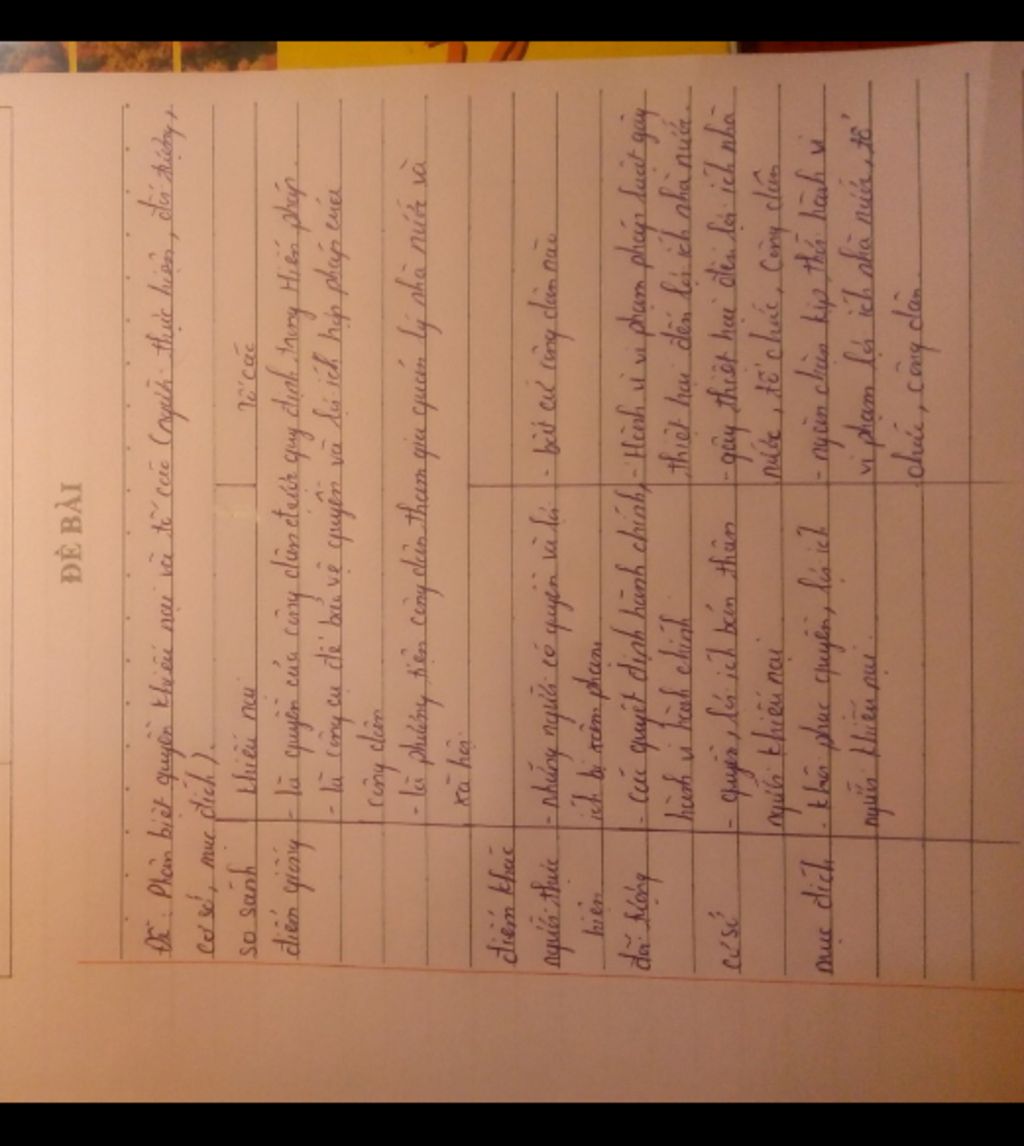 ĐỀ BÀI
Đề: Phân biệt quyền khiếu nại và tố cáo (người thực hiện, đối tượng,
cơ sở, mục đích).
So sánh khiếu nại Tố cáo
điểm giống - là quyền của công dân được quy định trong Hiến pháp.
- là công cụ để bảo vệ quyền và lợi ích hợp pháp của
công dân
- là phương tiện công dân tham gia quản lý nhà nước và
xã hội
điểm khác
người thực - những người có quyền và lợi - bất cứ công dân nào
hiện ích bị xâm phạm
đối tượng - các quyết định hành chính, - Hành vi vi phạm pháp luật gây
hành vi hành chính thiệt hại đến lợi ích nhà nước.
cơ sở - quyền, lợi ích bản thân - gây thiệt hại đến lợi ích nhà
người khiếu nại nước, tổ chức, công dân
mục đích - khôi phục quyền, lợi ích - ngăn chặn kịp thời hành vi
người khiếu nại. vi phạm lợi ích nhà nước, tổ
chức, công dân.